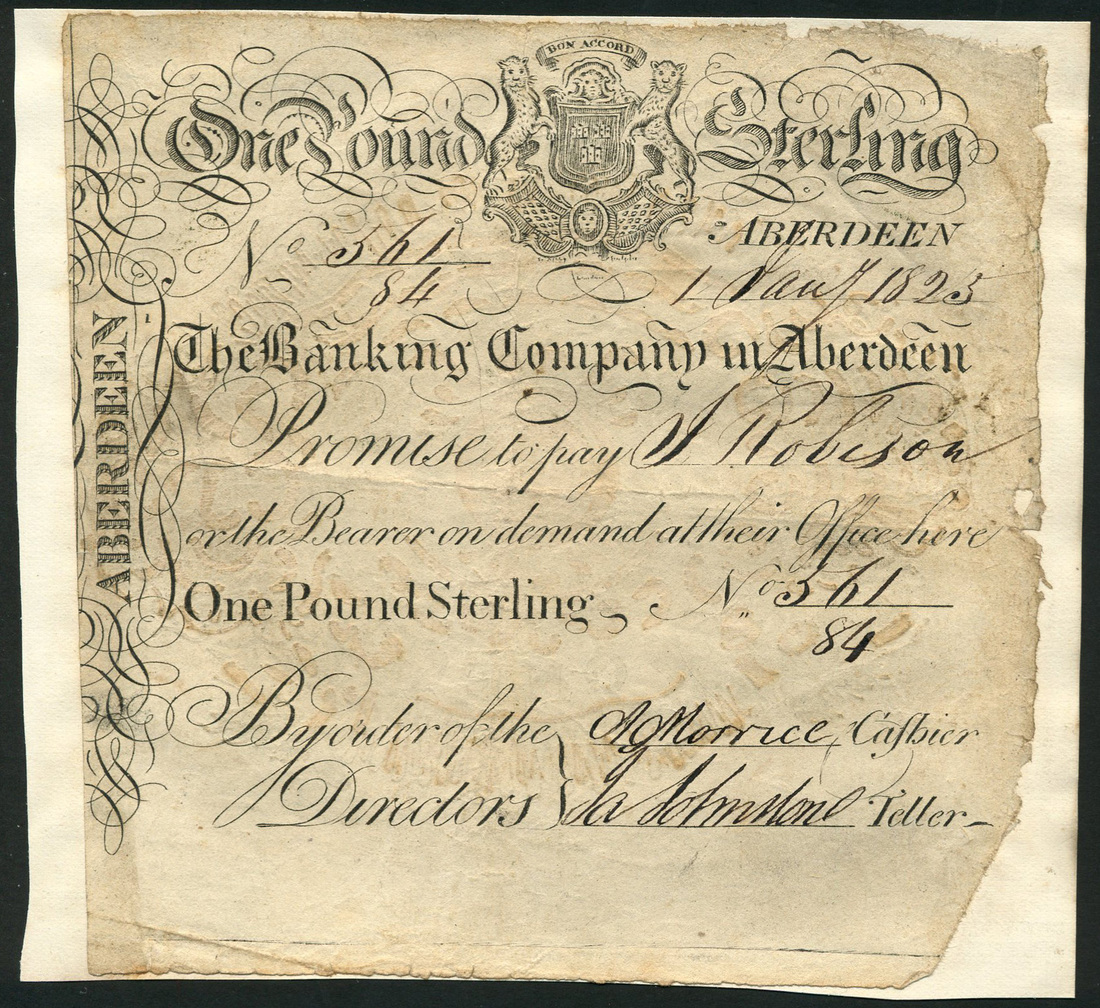 BON ACCORD
One Pound Sterling
No 561/84 ABERDEEN
1 Jany 1825
ABERDEEN
The Banking Company in Aberdeen
Promise to pay J Robison
or the Bearer on demand at their Office here
One Pound Sterling No 561/84
By order of the Directors
A Morrice Cashier
Ja Johnston Teller